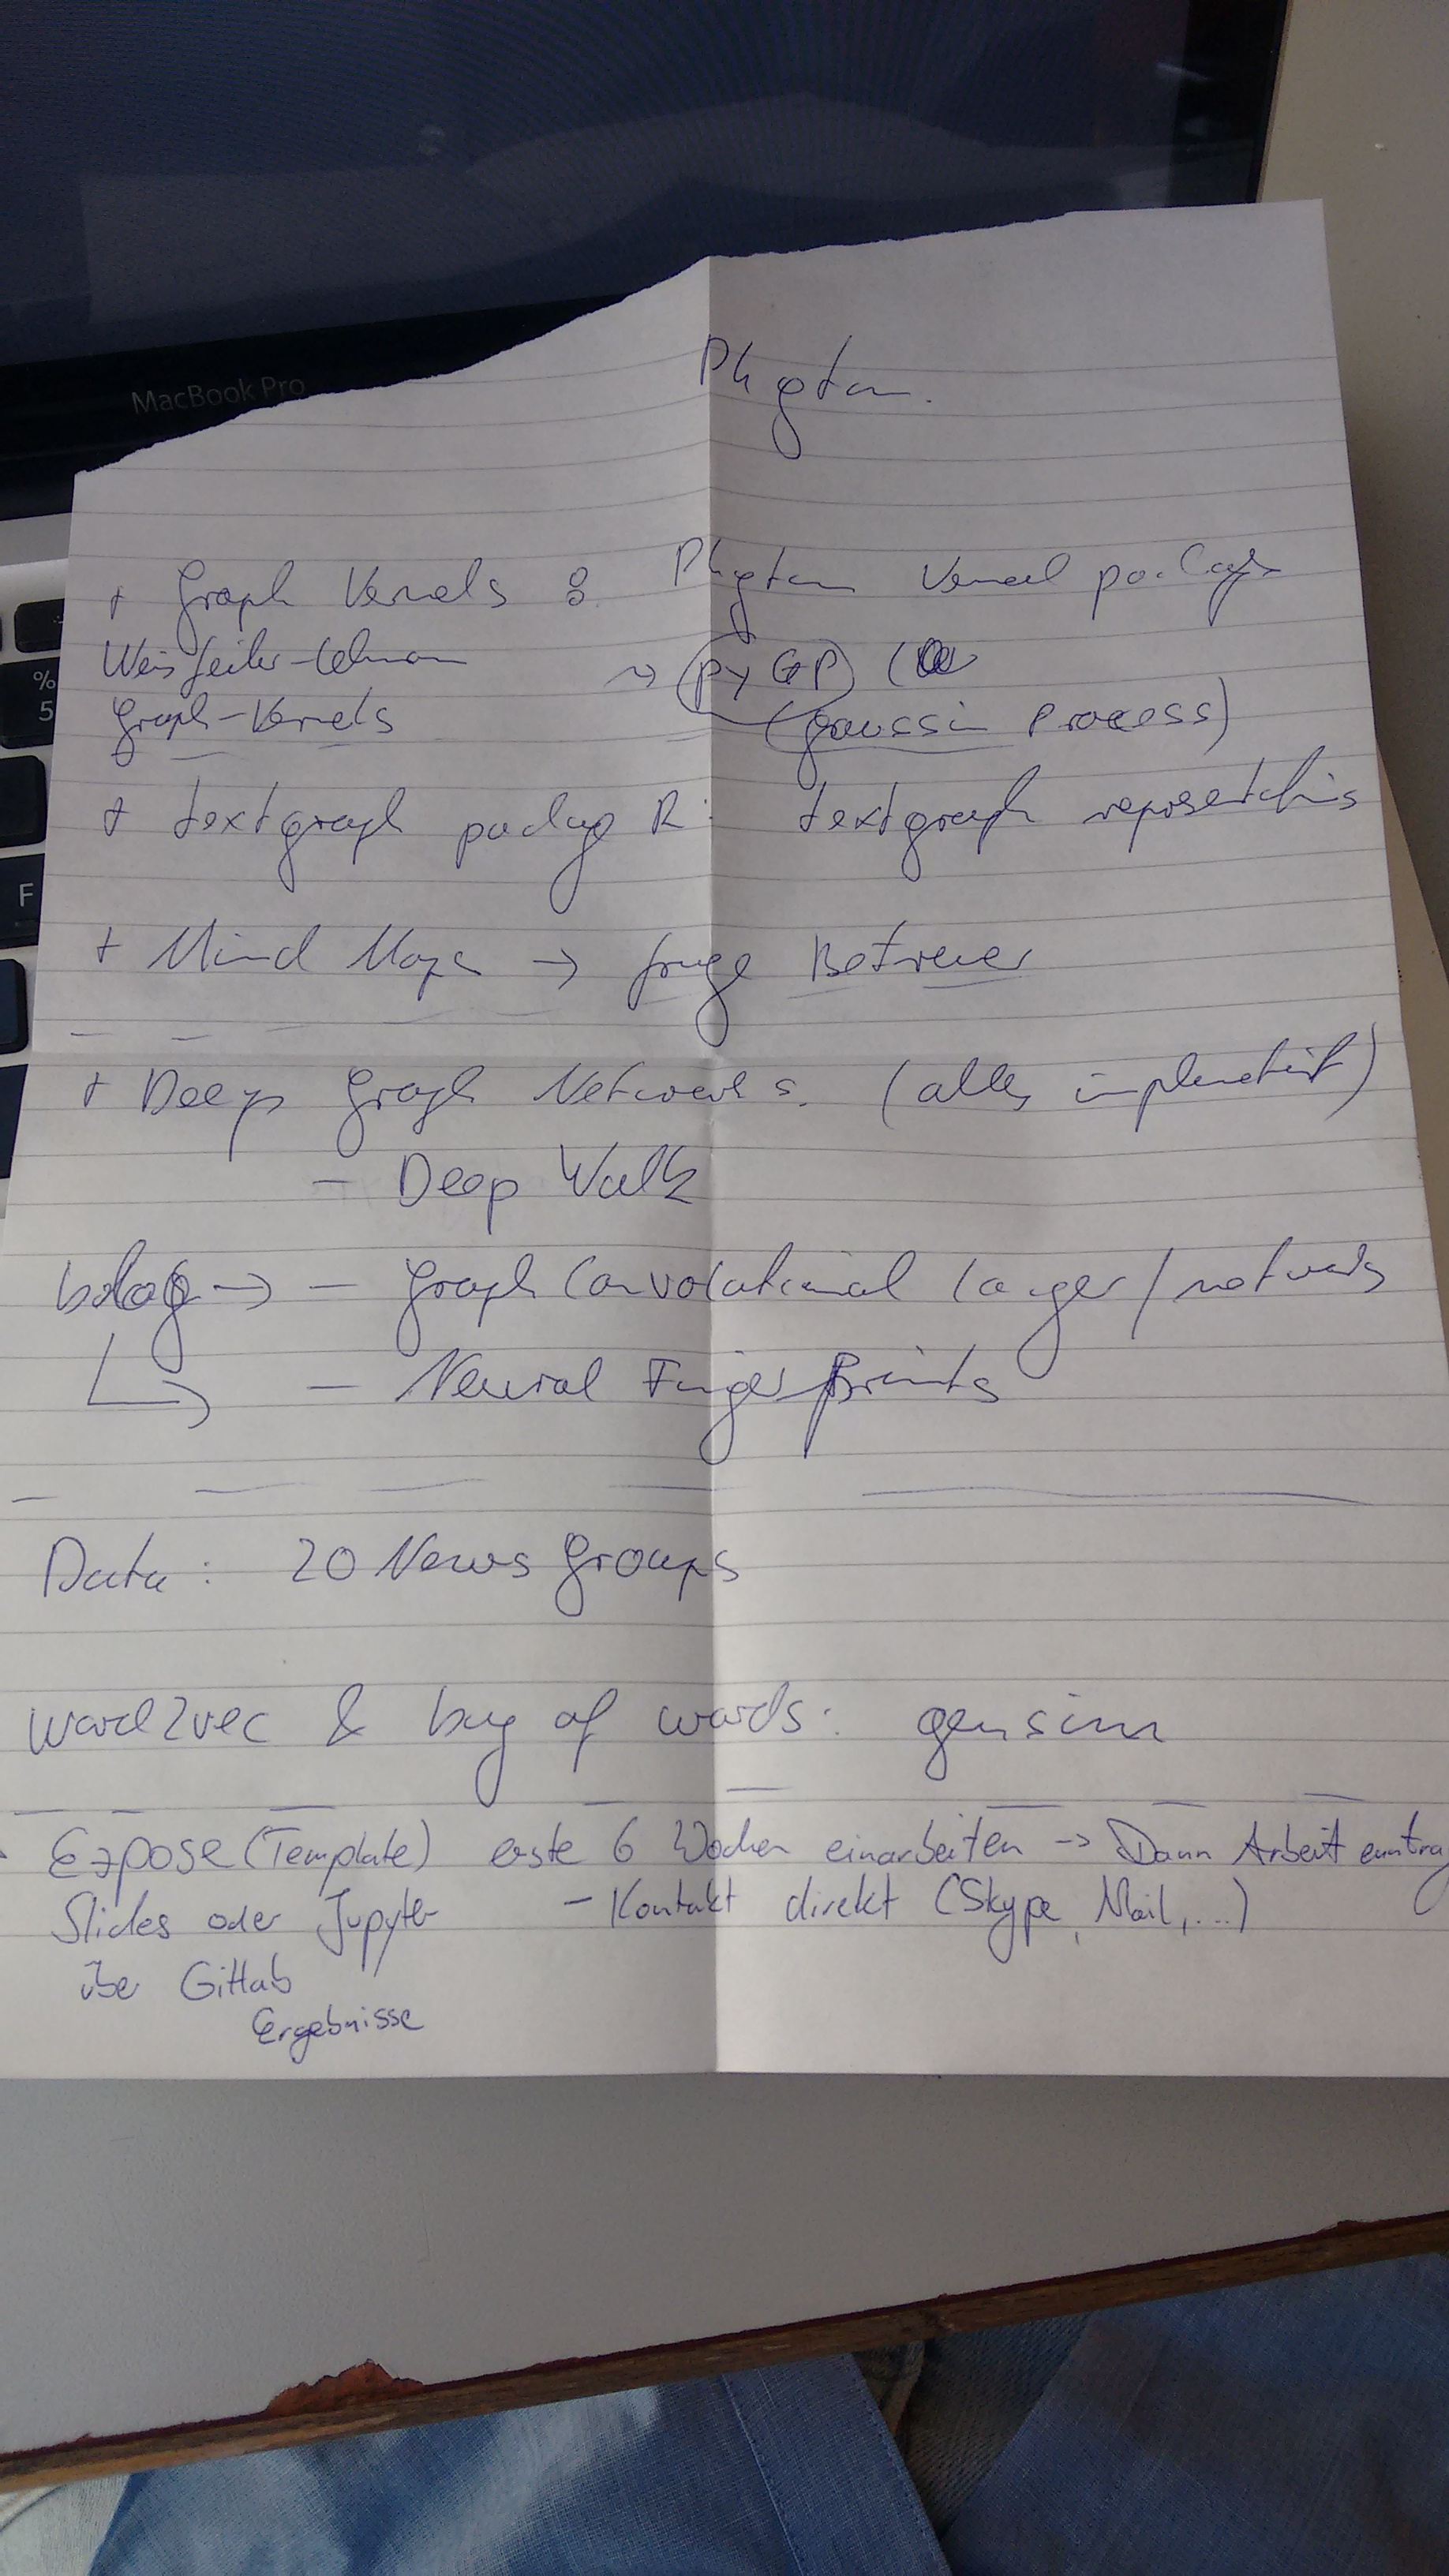 MacBook Pro
%
5
F
Phyton.
+ Graph Kernels : Phyton Kernel package
Weisfeiler-Lehman → PyGP (
Graph-Kernels (gaussin Process)
+ textgraph package R: textgraph representations
+ Mind Maps → frage Betreuer
+ Deep Graph Networks. (alles implementiert)
- Deep Walk
→ - Graph Convolutional layer/networks
- Neural Fingerprints
Data: 20 News Groups
word2vec & bag of words: gensim
Expose (Template) erste 6 Wochen einarbeiten -> Dann Arbeit eintrag
Slides oder Jupyter - Kontakt direkt (Skype, Mail,...)
über Gitlab
Ergebnisse